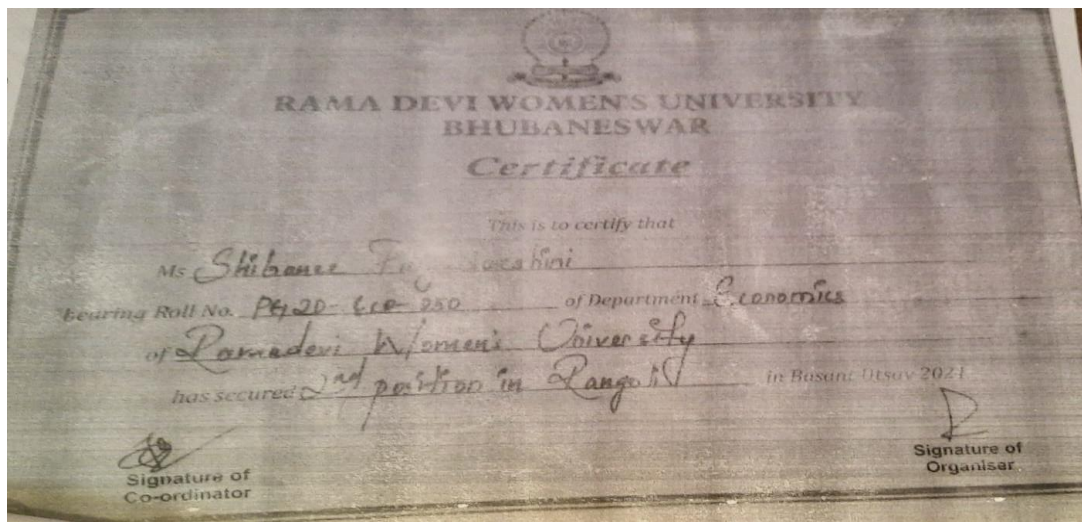 RAMA DEVI WOMEN'S UNIVERSITY
BHUBANESWAR
Certificate
This is to certify that
Ms Shibanee
bearing Roll No. PG20-Eco-250 of Department Economics
of Ramadevi Women's University
has secured 2nd position in Rangoli in Basant Utsav 2021
Signature of
Co-ordinator
Signature of
Organiser